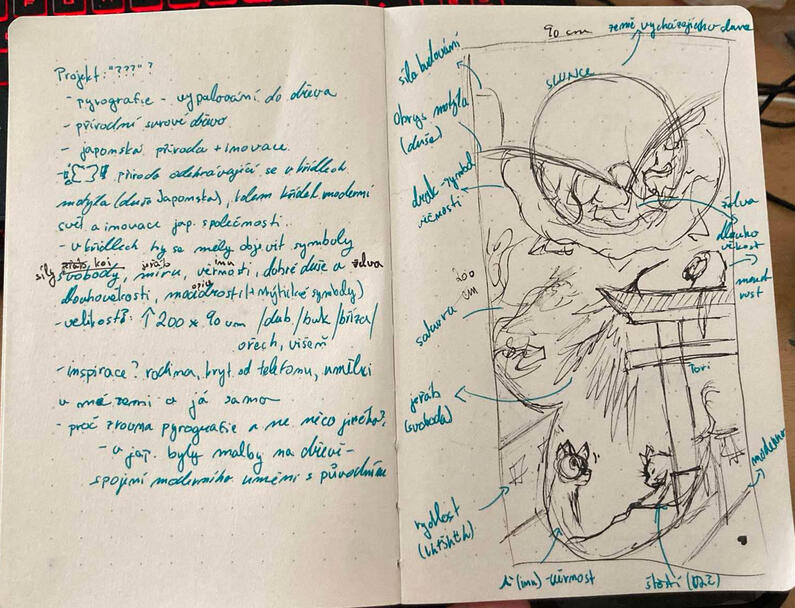 Projekt: "???"?
- pyrografie - vypalování do dřeva
- přírodní surové dřevo
- japonská příroda + inovace
- příroda odehrávající se v křídlech
motýla (duše Japonska), kolem křídel moderní
svět a inovace jap. společnosti.
- v křídlech by se měly objevit symboly
síly jeřáb, koi jeřáb inu
svobody, míru, věrnosti, dobré duše a želva
dlouhověkosti, moudrosti (+ mýtické symboly)
- velikost?: ↑ 200 x 90 cm /dub/buk/bříza/
ořech, višeň
- inspirace? rodina, kryt od telefonu, umělci
v mé zemi a já samo
- proč zrovna pyrografie a ne něco jiného?
- v jap. byly malby na dřevě -
spojení moderního umění s původním
90 cm
země vycházejícího
síla budování
SLUNCE
Obrys motýla
(duše)
drak - symbol
věčnosti
želva
dlouho
věkost
moud
rost
200
cm
sakura
Tori
jeřáb
(svoboda)
rychlost
(inu) - věrnost
štěstí